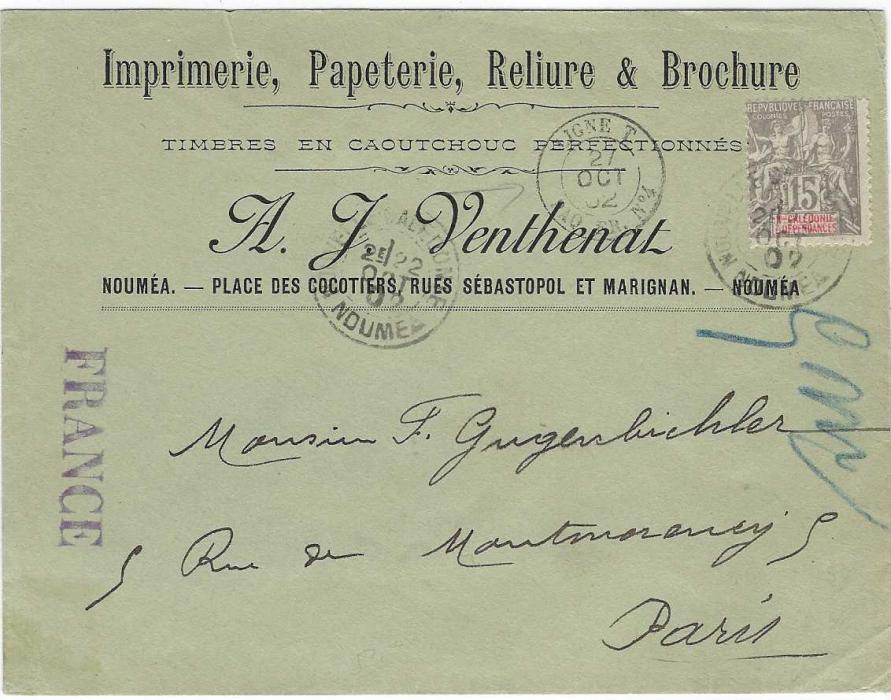 Imprimerie, Papeterie, Reliure & Brochure
TIMBRES EN CAOUTCHOUC PERFECTIONNÉS
A. J. Venthenat
NOUMÉA. — PLACE DES COCOTIERS, RUES SÉBASTOPOL ET MARIGNAN. — NOUMÉA
LIGNE T
27
OCT
02
PAQ. FR. Nº4
REPUBLIQUE FRANÇAISE
COLONIES POSTES
15
Nlle CALÉDONIE
ET DÉPENDANCES
22
OCT
02
NOUMEA
OCT
02
NOUMEA
FRANCE
Monsieur F. Gugenbichler
5 Rue de Montmorency 5
Paris